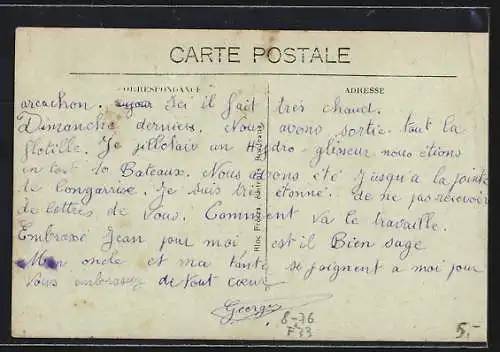 CARTE POSTALE
CORRESPONDANCE ADRESSE
arcachon. Ici il fait très chaud.
Dimanche derniers. Nous avons sortie tout la
flotille. Je pilotair un Hydro-gliseur nous étions
in tout 10 Bateaux. Nous avons été Jusqu'a la pointe
de Je suis très étonné. de ne pas recevoir
de lettres de Vous. Comment va le travaille.
Embrassé Jean pour moi est il Bien sage
Mon oncle et ma tante se joignent a moi pour
Vous embrassez de tout coeur
Georges
8-76
F33
5.-